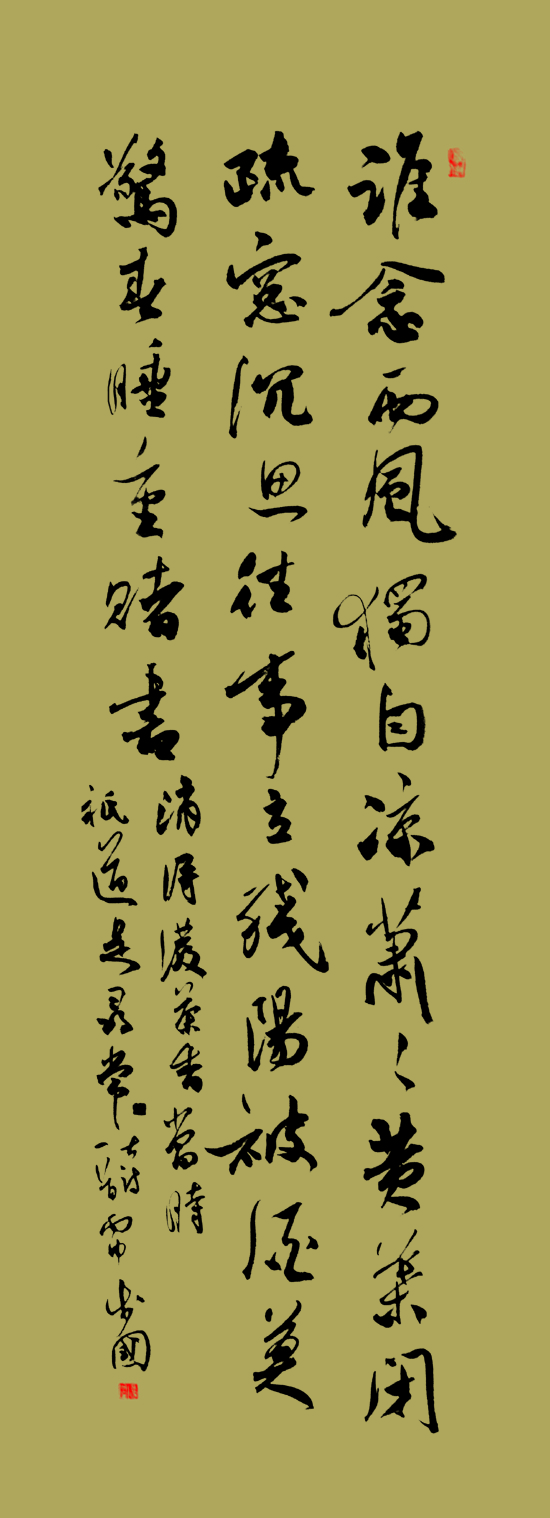 誰念西風獨自凉蕭々黄葉閉
疏窓沉思往事立殘陽被酒莫
驚春睡重賭書
消得潑茶香當時
祇道是尋常
國